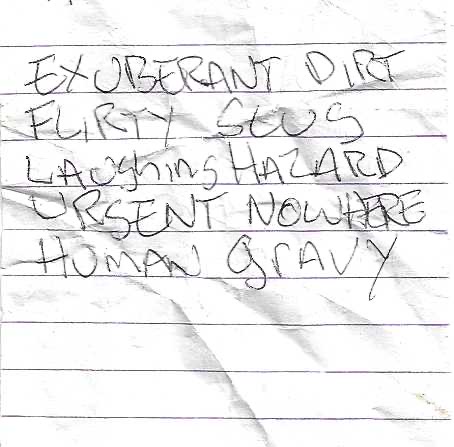 EXUBERANT DIRT
FLIRTY SLUG
LAUghing HAZARD
URGENT NOWHERE
HUMAN GrAVY